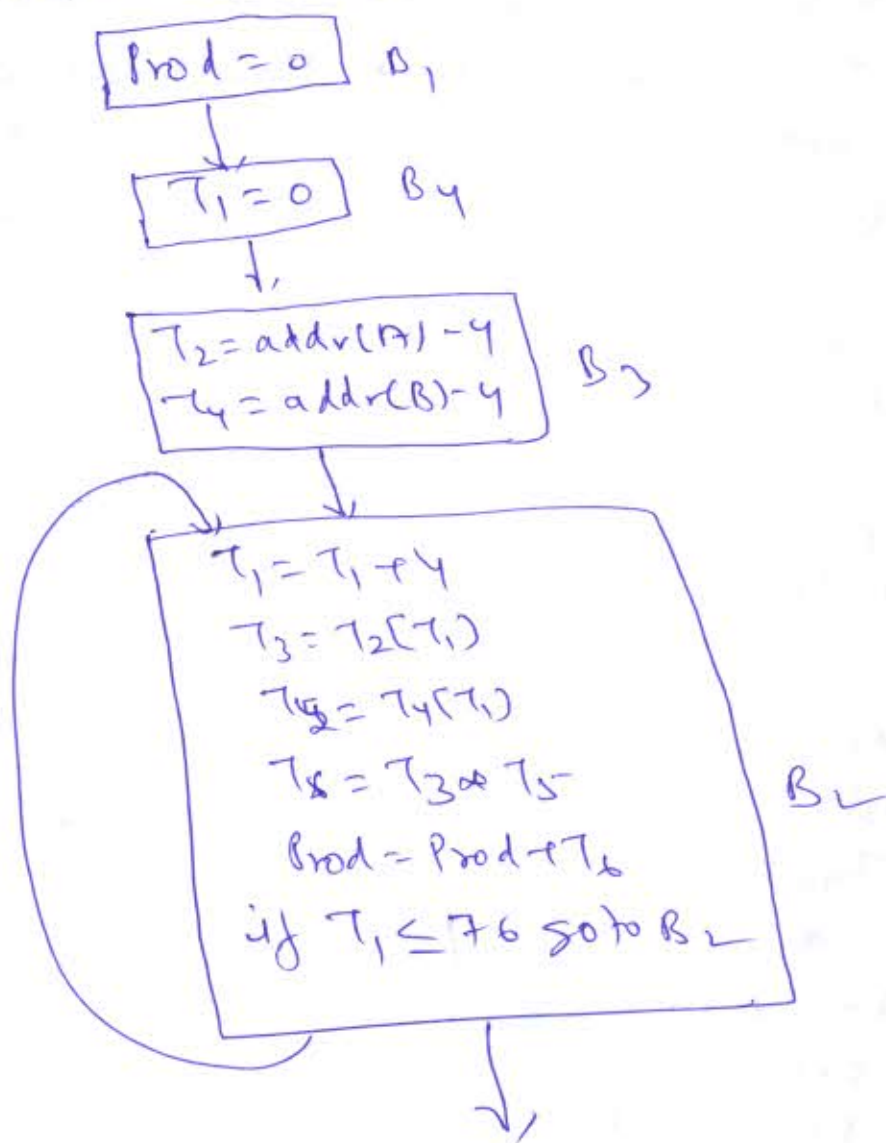 Prod = 0 B1
T1 = 0 B4
T2 = addr(A) - 4
T4 = addr(B) - 4
B3
T1 = T1 + 4
T3 = T2[T1]
T5 = T4[T1]
T6 = T3 * T5
B2
Prod = Prod + T6
if T1 ≤ 76 goto B2